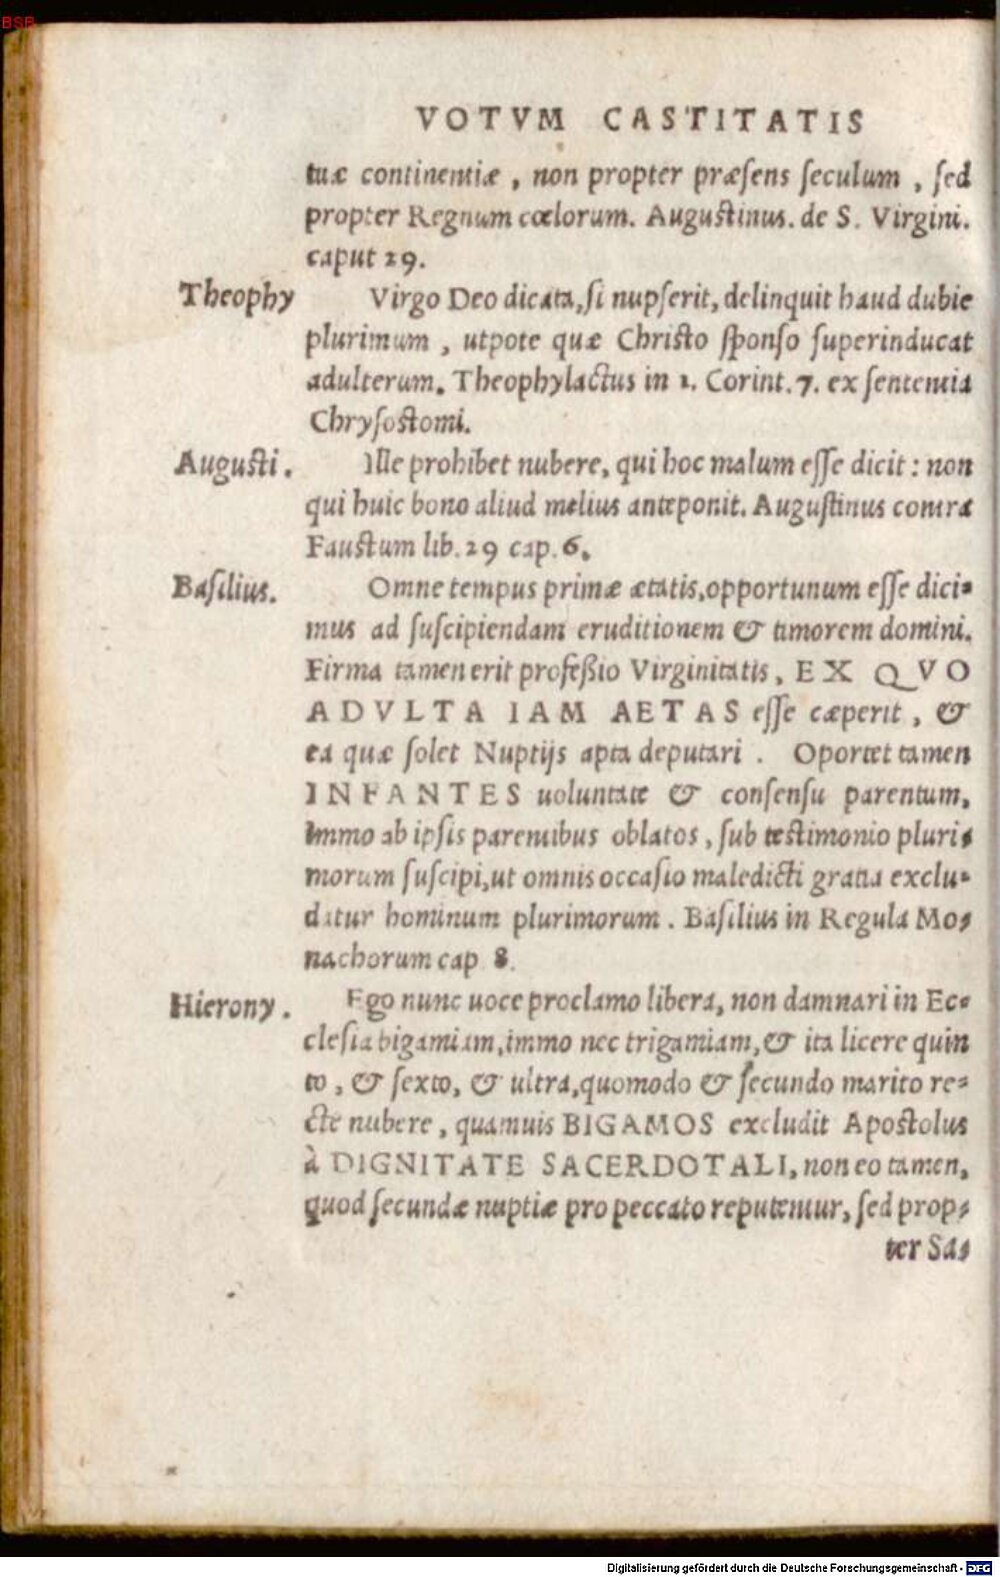 BSB
VOTVM CASTITATIS
tuæ continentiæ, non propter præsens seculum, sed
propter Regnum cœlorum. Augustinus. de S. Virgini.
caput 29.
Theophy
Virgo Deo dicata, si nupserit, delinquit haud dubie
plurimum, utpote quæ Christo sponso superinducat
adulterum. Theophylactus in 1. Corint. 7. ex sententia
Chrysostomi.
Augusti.
Ille prohibet nubere, qui hoc malum esse dicit: non
qui huic bono aliud melius anteponit. Augustinus contra
Faustum lib. 29 cap. 6.
Basilius.
Omne tempus primæ ætatis, opportunum esse dici-
mus ad suscipiendam eruditionem & timorem domini.
Firma tamen erit profeßio Virginitatis, EX QVO
ADVLTA IAM AETAS esse cæperit, &
ea quæ solet Nuptijs apta deputari. Oportet tamen
INFANTES uoluntate & consensu parentum,
Immo ab ipsis parentibus oblatos, sub testimonio pluri-
morum suscipi, ut omnis occasio maledicti gratia exclu-
datur hominum plurimorum. Basilius in Regula Mo-
nachorum cap 8.
Hierony.
Ego nunc uoce proclamo libera, non damnari in Ec-
clesia bigamiam, immo nec trigamiam, & ita licere quin
to, & sexto, & ultra, quomodo & secundo marito re-
cte nubere, quamuis BIGAMOS excludit Apostolus
à DIGNITATE SACERDOTALI, non eo tamen,
quod secundæ nuptiæ pro peccato reputentur, sed prop-
ter Sa-
Digitalisierung gefördert durch die Deutsche Forschungsgemeinschaft - DFG